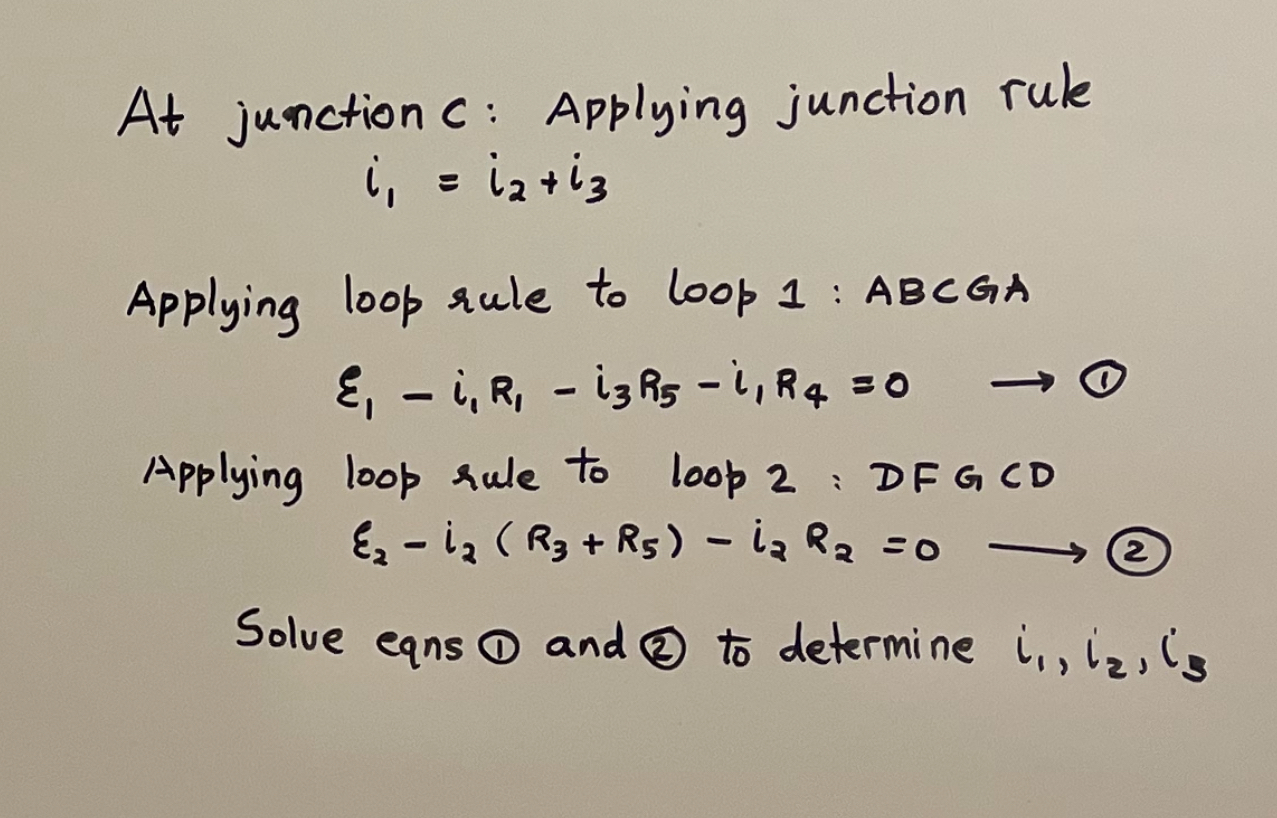 At junction C : Applying junction rule
i₁ = i₂ + i₃
Applying loop rule to loop 1 : ABCGA
ℰ₁ - i₁R₁ - i₃R₅ - i₁R₄ = 0 → ①
Applying loop rule to loop 2 : DFGCD
ℰ₂ - i₂ (R₃ + R₅) - i₂ R₂ = 0 → ②
Solve eqns ① and ② to determine i₁, i₂, i₃